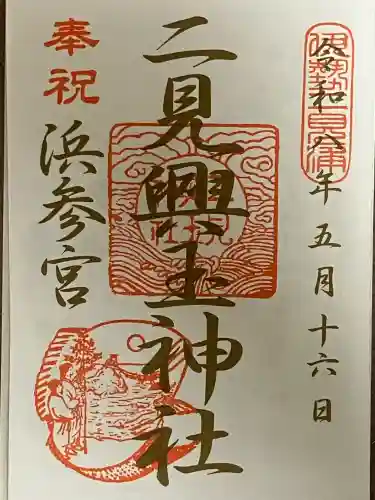 令和八年五月十六日
二見興玉神社
奉祝
浜参宮